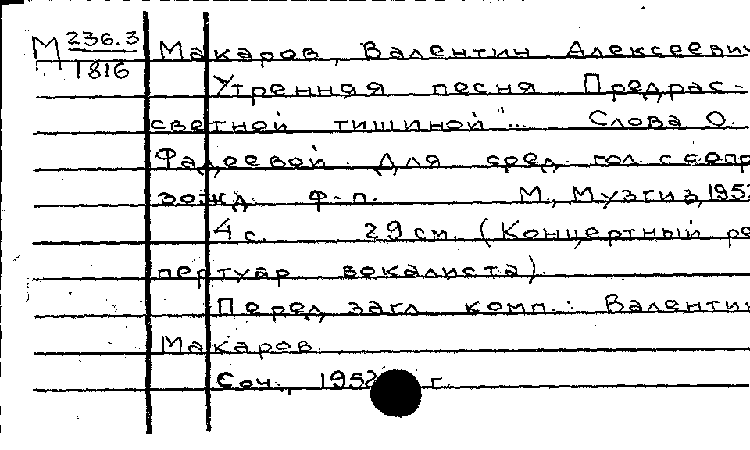 М 236.3 Макаров, Валентин Алексеевич
1816 Утренняя песня "Предрас-
светной тишиной"... Слова О.
Фадеевой. Для сред. гол. с сопр
вожд. ф-п. М., Музгиз, 195
4 с. 29 см. (Концертный ре
пертуар вокалиста)
Перед загл. комп.: Валентин
Макаров
Соч., 195 г.